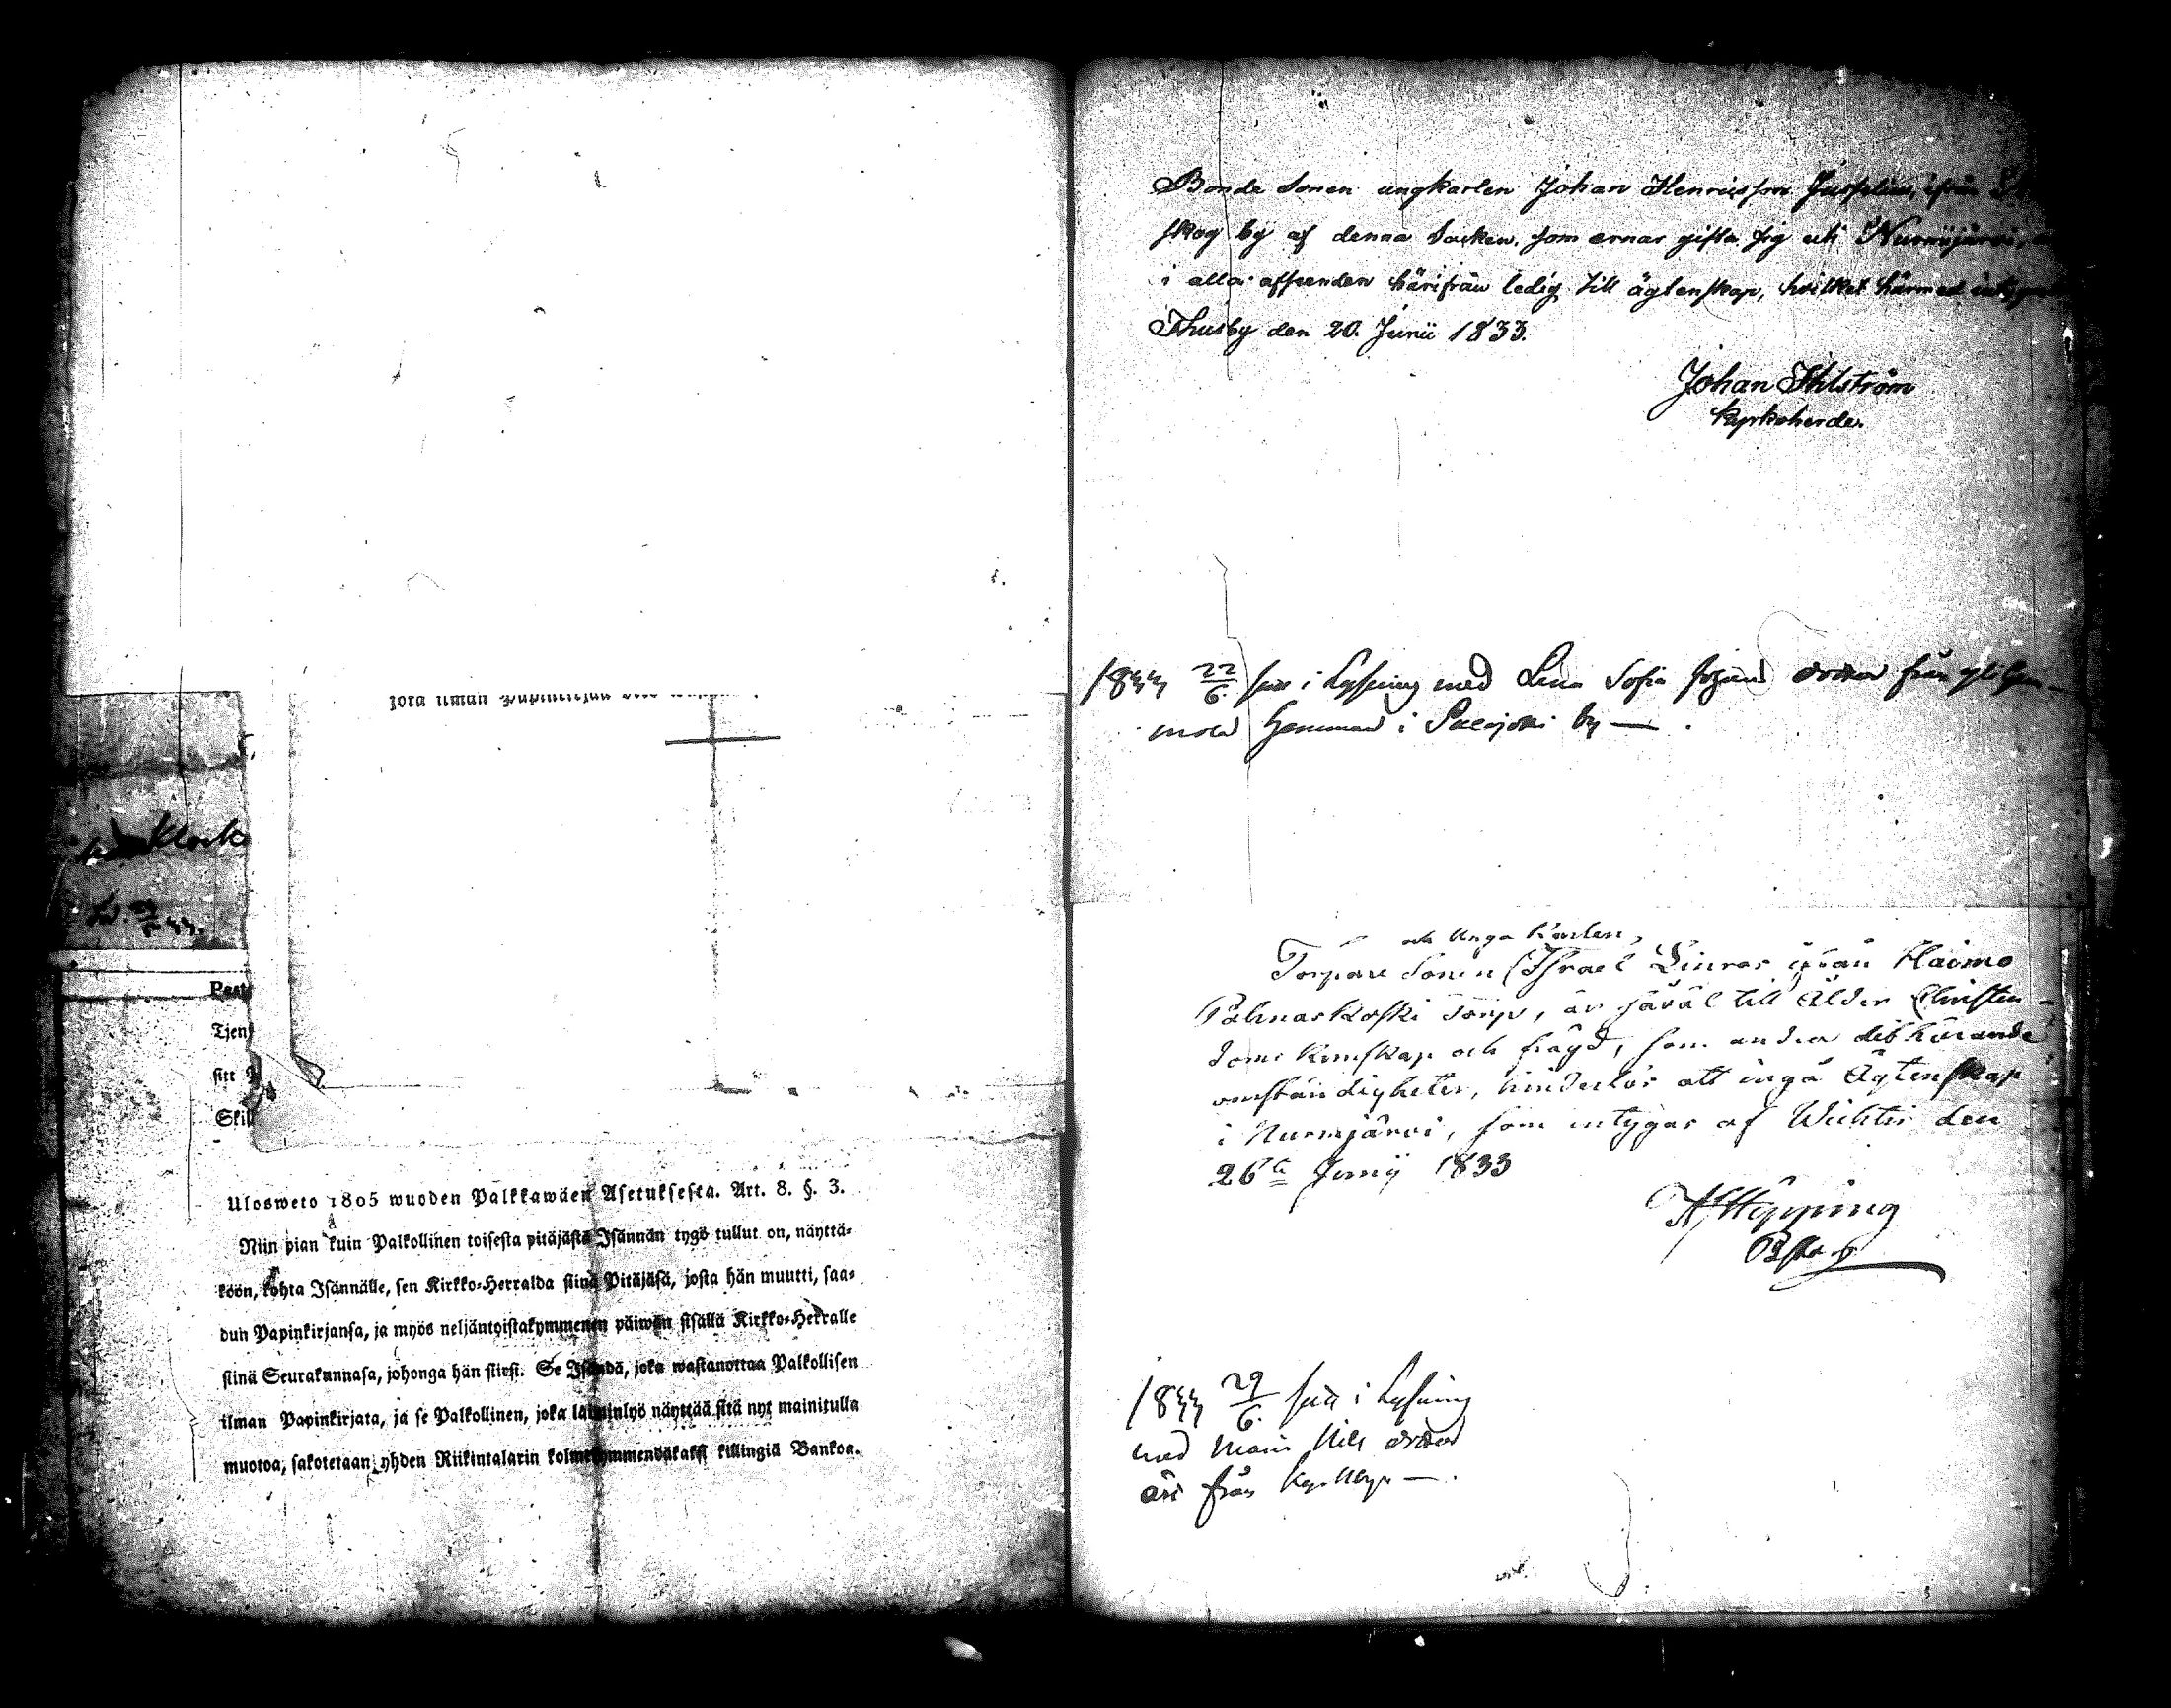 Klock
Past
Tjen
sitt
Skill
Ulosweto 1805 wuoden Palkkawäen Asetuksesta. Art. 8. §. 3.
Niin pian kuin Palkollinen toisesta pitäjästä Isännän tygö tullut on, näyttä-
köön, kohta Isännälle, sen Kirkko-Herralda siinä Pitäjäsä, josta hän muutti, saa-
dun Papinkirjansa, ja myös neljäntoistakymmenen päiwän sisällä Kirkko-Herralle
siinä Seurakunnasa, johonga hän siirsi. Se Isändä, joka wastanottaa Palkollisen
ilman Papinkirjata, ja se Palkollinen, joka laiminlyö näyttää sitä nyt mainitulla
muotoa, sakotetaan yhden Riikintalarin kolmekymmendäkaksi killingiä Bankoa.
Bonde Sonen ungkarlen Johan Henricsson ifrån
skog by af denna Socken, som ernar gifta sig uti Nurmijärvi,
i alla afseenden härifrån ledig till ägtenskap, hvilket härmed intygas
Thusby den 20. Junii 1833.
Johan Ihlström
Kyrkoherde.
1833 22/6 i Lysning med Lena Sofia dotter från
hemman i Palojoki by —.
och Unga Karlen,
Torpare Sonen Israel Linros ifrån Haimo
Palmarkoski Torp, är såväl till Ålder Christen-
doms Kunskap och frägd, som andra dithörande
omständigheter, hinderlös att ingå Ägtenskap
i Nurmijärvi, som intygas af Wichtis den
26te Junij 1833
Hipping
1833 29/6 i Lysning
med Maria Nils dotter
från